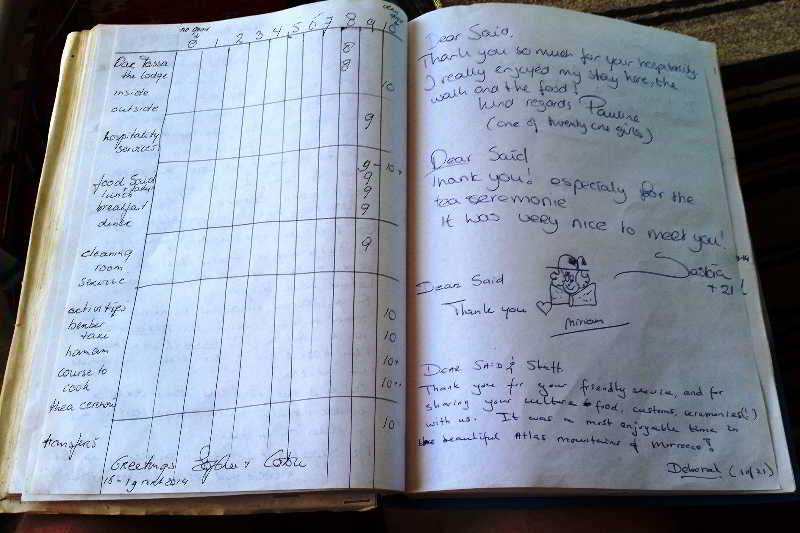 no good
0 1 2 3 4 5 6 7 8 9 10
Dar Tassa 8
the lodge 8
inside 10
outside
hospitality 9
services
food Said 9-10+
lunch 9
breakfast 9
diner 9
cleaning 9
room
service
activities 10
berber
taxi 10
hamam 10+
course to
cook 10++
thea ceremon
transfers 10
Greetings
15-19 2014
Dear Said.
Thank you so much for your hospitality.
I really enjoyed my stay here, the
walk and the food!
kind regards Pauline
(one of twenty one girls)
Dear Said
Thank you! especialy for the
tea ceremonie
It was very nice to meet you!
Saskia
+21!
Dear Said
Thank you
Miriam
Dear Said & Staff.
Thank you for your friendly service, and for
sharing your culture (food, customs, ceremonies!)
with us. It was a most enjoyable time in
beautiful Atlas mountains of Morroco!
Deborah (1 of 21)